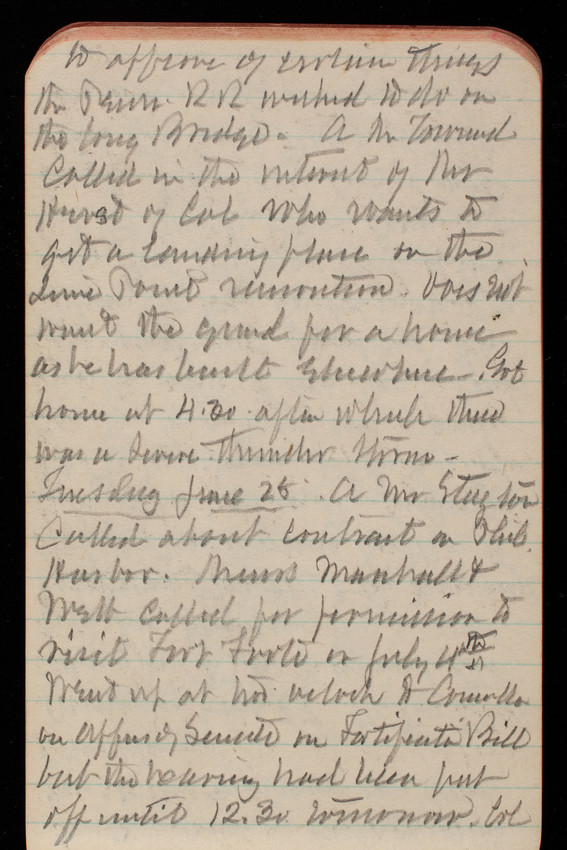 to approve of certain things
the Penn. RR wished to do on
the Long Bridge. A Mr Townsend
Called in the interest of Mr
Hurst of Cal who wants to
get a landing place on the
Lime Point reservation. Does not
want the ground for a home
as he has built elsewhere. Got
home at 4.30 after which there
was a severe thunder storm -
Tuesday June 28. A Mr
Called about contract on Phil.
Harbor. Messrs Marshall &
Webb called for permission to
visit Fort Foote on July 4th
Went up at o'clock to Committee
on Appns of Senate on Fortificatn Bill
but the hearing had been put
off until 12.30 tomorrow. Col